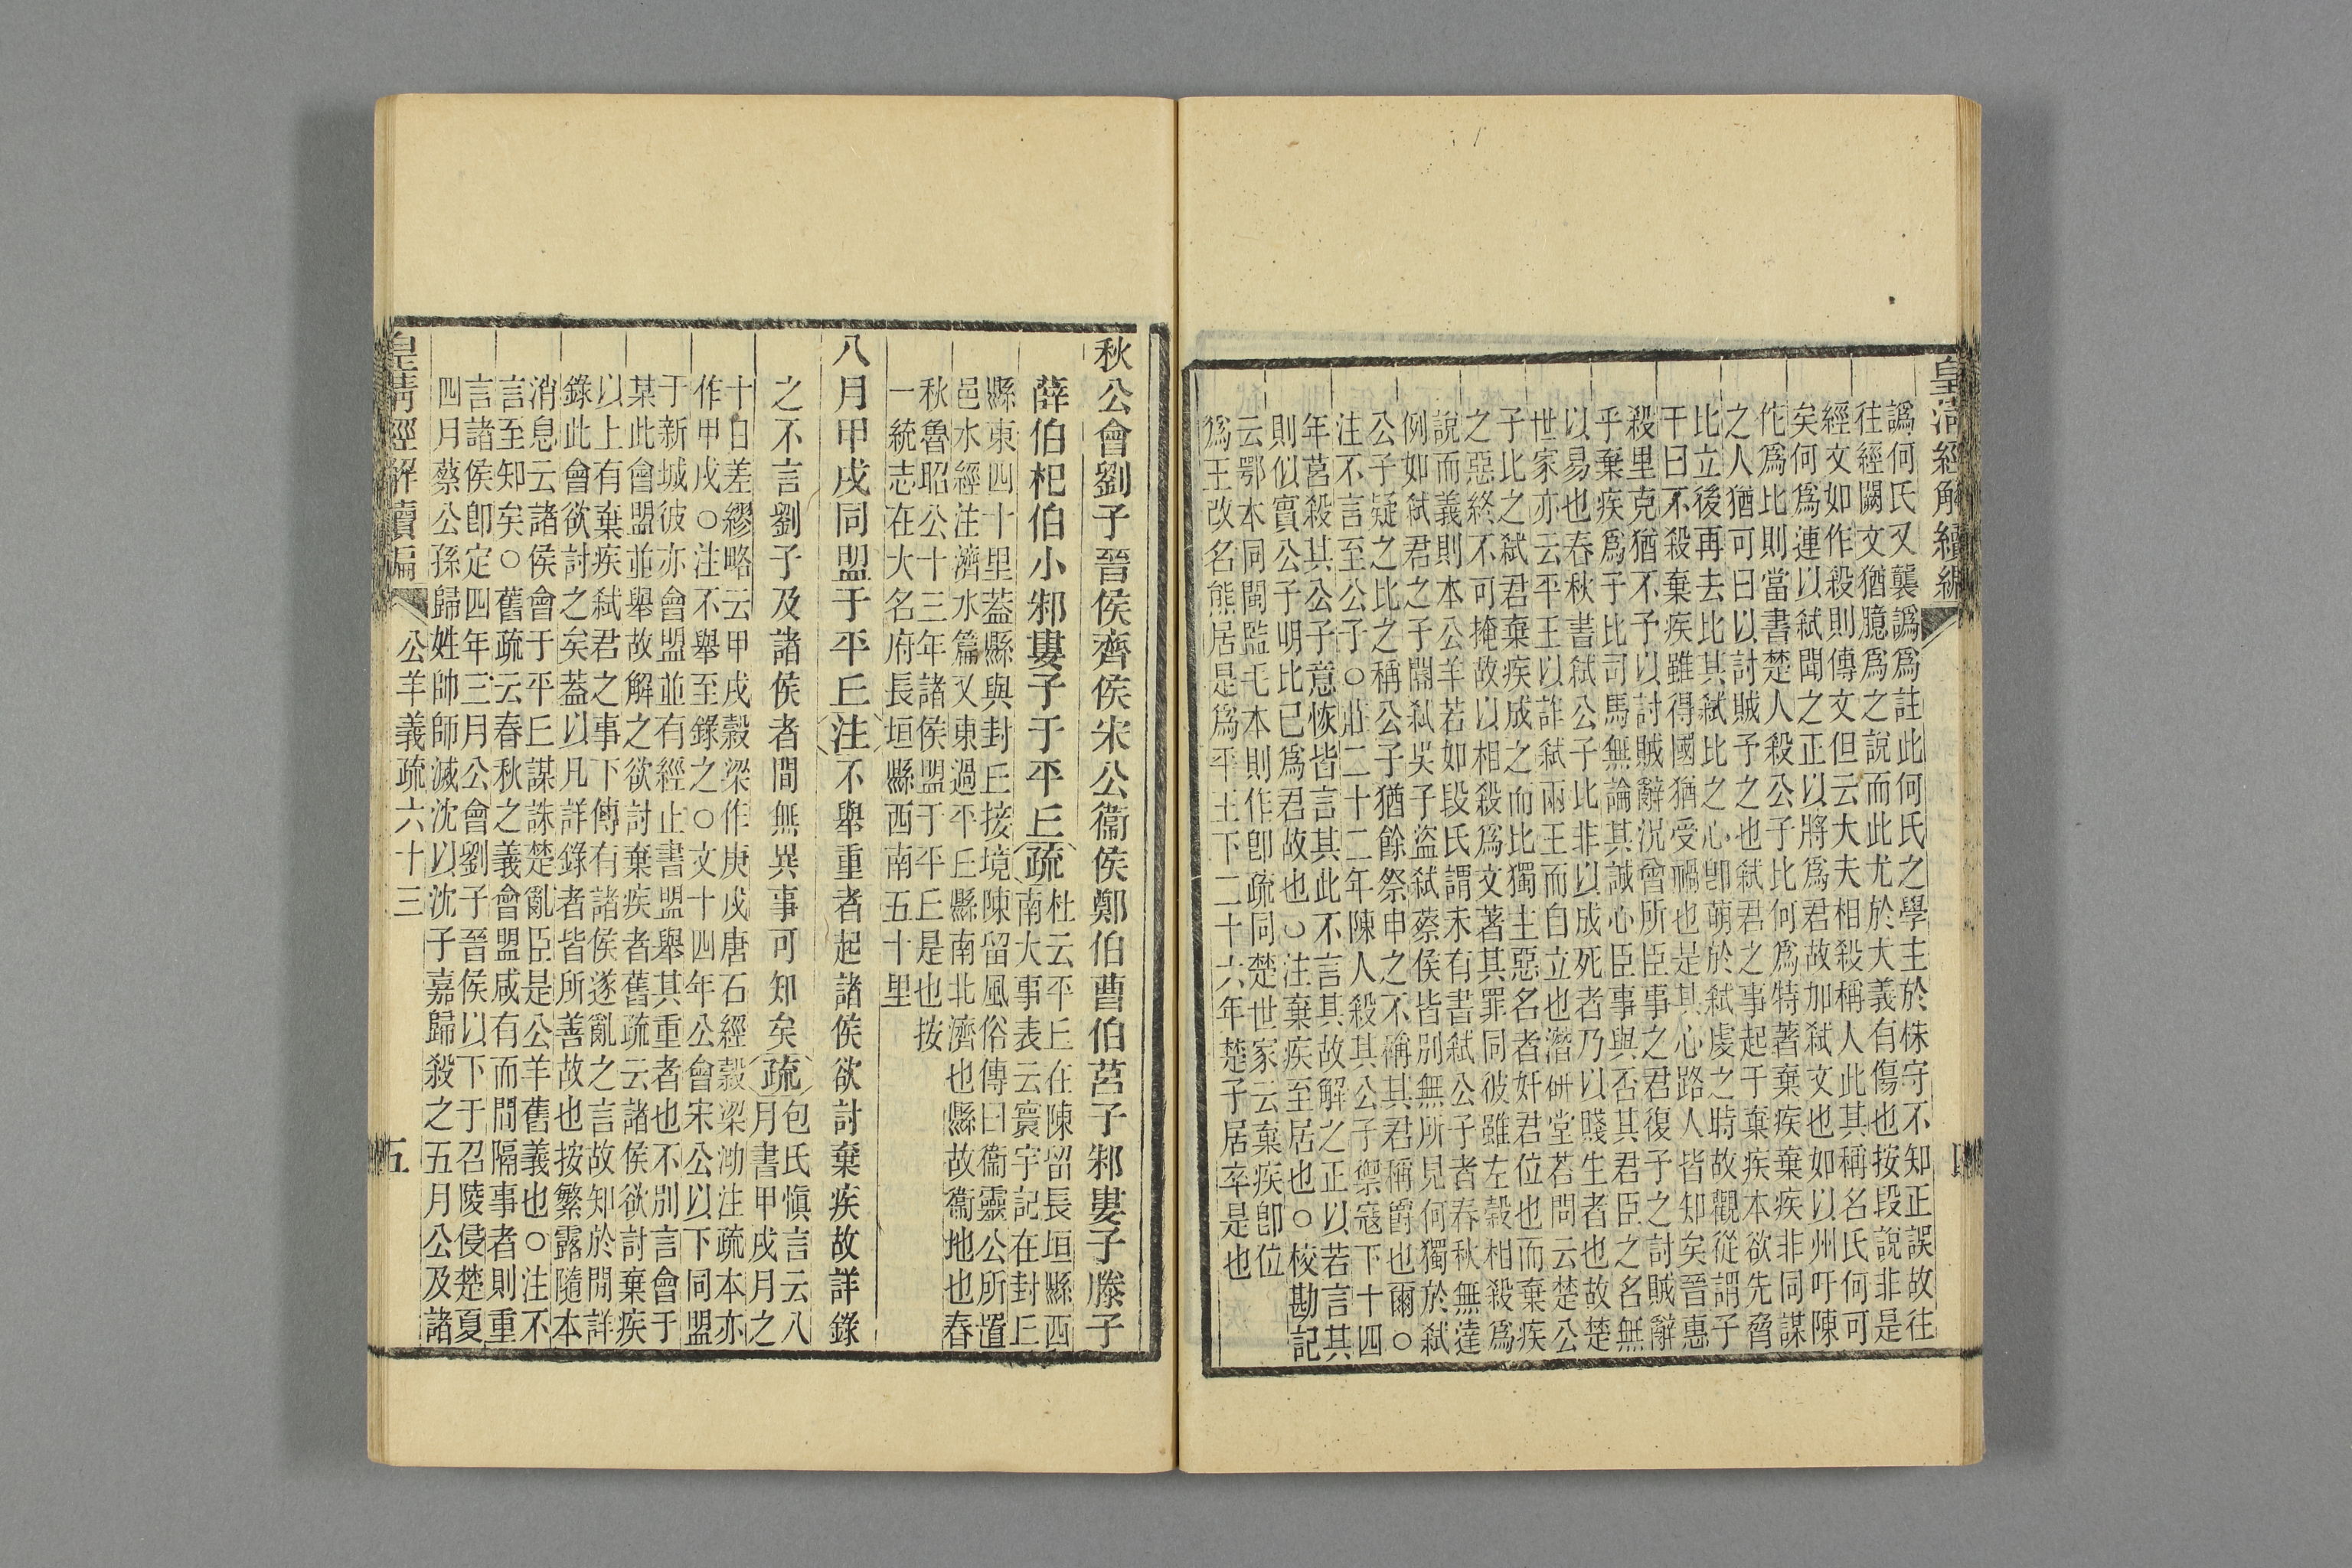 皇清經解續編
譌何氏又襲譌爲註此何氏之學主於株守不知正誤故往
往經闕文猶臆爲之說而此尤於大義有傷也按段說非是
經文如作殺則傳文但云大夫相殺稱人此其稱名氏何可
矣何爲連以弒聞之正以將爲君故加弒文也如以州吁陳
佗爲比則當書楚人殺公子比何爲特著棄疾棄疾非同謀
之人猶可曰以討賊予之也弒君之事起于棄疾本欲先脅
比立後再去比其弒比之心卽萌於弒虔之時故觀從謂子
干曰不殺棄疾雖得國猶受禍也是其心路人皆知矣晉惠
殺里克猶不予以討賊辭況曾所臣事之君復子之討賊辭
乎棄疾爲于比司馬無論其誠心臣事與否其君臣之名無
以易也春秋書弒公子比非以成死者乃以賤生者也故楚
世家亦云平王以詐弒兩王而自立也潛研堂若問云楚公
子比之弒君棄疾成之而比獨主惡名者奸君位也而棄疾
之惡終不可掩故以相殺爲文著其罪同彼雖左穀相殺爲
說而義則本公羊若如段氏謂未有書弒公子者春秋無達
例如弒君之子開弒吳子盜弒蔡侯皆別無所見何獨於弒
公子疑之比之稱公子猶餘祭申之不稱其君稱爵也爾○
注不言至公子○莊二十二年陳人殺其公子禦寇下十四
年莒殺其公子意恢皆言其此不言其故解之正以若言其
則似實公子明比已爲君故也○注棄疾至居也○校勘記
云鄂本同閩監毛本則作卽疏同楚世家云棄疾卽位
爲王改名熊居是爲平王下二十六年楚子居卒是也
四
秋公會劉子晉侯齊侯宋公衞侯鄭伯曹伯莒子邾婁子滕子
薛伯杞伯小邾婁子于平丘疏杜云平丘在陳留長垣縣西
南大事表云寰宇記在封丘
縣東四十里蓋縣與封丘接境陳留風俗傳曰衞靈公所置
邑水經注濟水篇又東過平丘縣南北濟也縣故衞地也春
秋魯昭公十三年諸侯盟于平丘是也按
一統志在大名府長垣縣西南五十里
八月甲戌同盟于平丘注不舉重者起諸侯欲討棄疾故詳錄
之不言劉子及諸侯者間無異事可知矣疏包氏愼言云八
月書甲戌月之
十日差繆略云甲戌穀梁作庚戌唐石經穀梁泐注疏本亦
作甲戌○注不舉至錄之○文十四年公會宋公以下同盟
于新城彼亦會盟並有經止書盟舉其重者也不別言會于
某此會盟並舉故解之欲討棄疾者舊疏云諸侯欲討棄疾
以上有棄疾弒君之事下傳有諸侯遂亂之言故知於閒詳
錄此會欲討之矣蓋以凡詳錄者皆所善故也按繁露隨本
消息云諸侯會于平丘謀誅楚亂臣是公羊舊義也○注不
言至知矣○舊疏云春秋之義會盟咸有而間隔事者則重
言諸侯卽定四年三月公會劉子晉侯以下于召陵侵楚夏
四月蔡公孫歸姓帥師滅沈以沈子嘉歸殺之五月公及諸
皇清經解續編
公羊義疏六十三
五